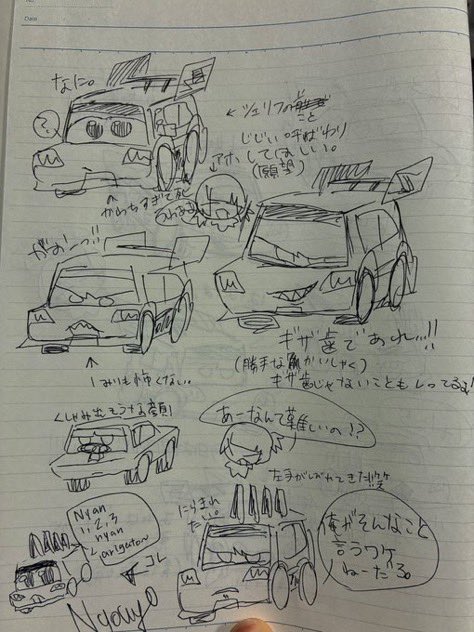 Class
なに。
?
← シェリフのこと
じじい呼ばわり
してほしい。
(願望)
アホ
↑かわちすぎて死
がおーっ!!
↑
1みりも怖くない。
ギザ歯であれ…!!
(勝手なかいしゃく)
ギザ歯じゃないこともしってるよ!
くしゃみ出そうな顔!
あーなんて難しいの!?
左手がしびれてきた
にらまれ
たい。
Nyan
1,2,3
nyan
arigaton
コレ
Nyanyo
俺がそんなこと
言うワケ
ねーだろ。